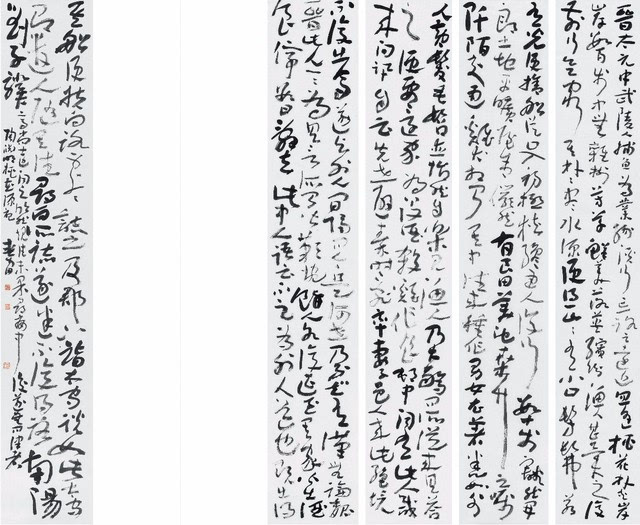 晉太元中武陵捕魚為業緣溪行忘路之遠近忽逢桃花林夾
岸數百步中無雜樹芳草鮮美落英繽紛漁人甚異之復
前行欲窮其林林盡水源便得一山山有小口髣髴若
有光便捨船從口入初極狹纔通人復行數十步豁然開
朗土地平曠屋舍儼然有良田美池桑竹之屬
阡陌交通雞犬相聞其中往來種作男女衣著悉如外
人黃髮垂髫並怡然自樂見漁人乃大驚問所從來具答
之便要還家為設酒殺雞作食村中聞有此人咸
來問訊自云先世避秦時亂率妻子邑人來此絕境
不復出焉遂與外人間隔問今是何世乃不知有漢無論魏
晉此人一一為具言所聞皆歎惋餘人各復延至其家皆出酒
食停數日辭去此中人語云不足為外人道也既出得
其船便扶向路處處誌之及郡下詣太守說如此太守
即遣人隨其往尋向所誌遂迷不復得路南陽
劉子驥高尚士也聞之欣然規往未果尋病終後遂無問津者
陶淵明桃花源記